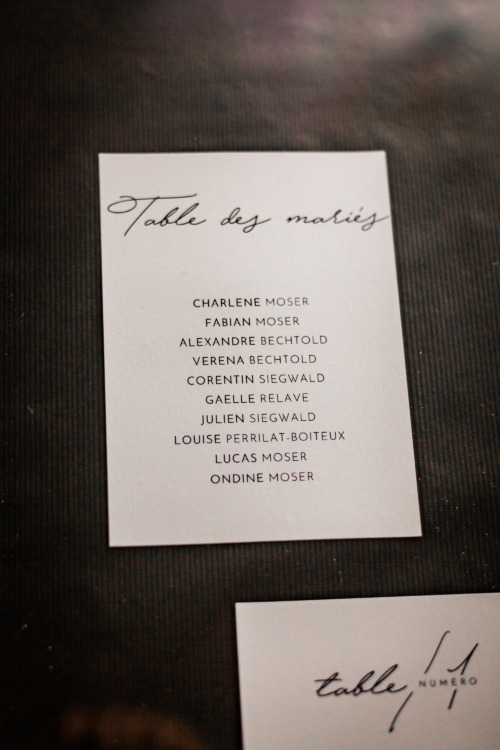 Table des mariés
CHARLENE MOSER
FABIAN MOSER
ALEXANDRE BECHTOLD
VERENA BECHTOLD
CORENTIN SIEGWALD
GAELLE RELAVE
JULIEN SIEGWALD
LOUISE PERRILAT-BOITEUX
LUCAS MOSER
ONDINE MOSER
table NUMÉRO 1